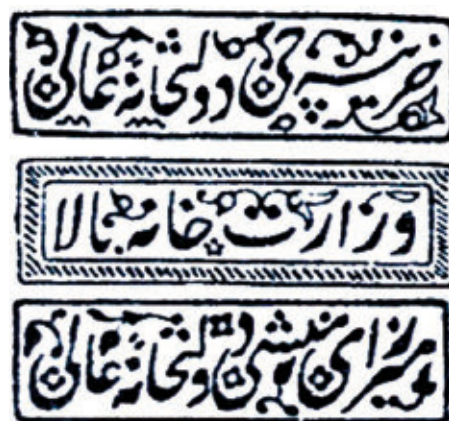 خزینه چی دولتخانه عالی
وزارت خانه بالا
میرزای منشی دولتخانه عالی